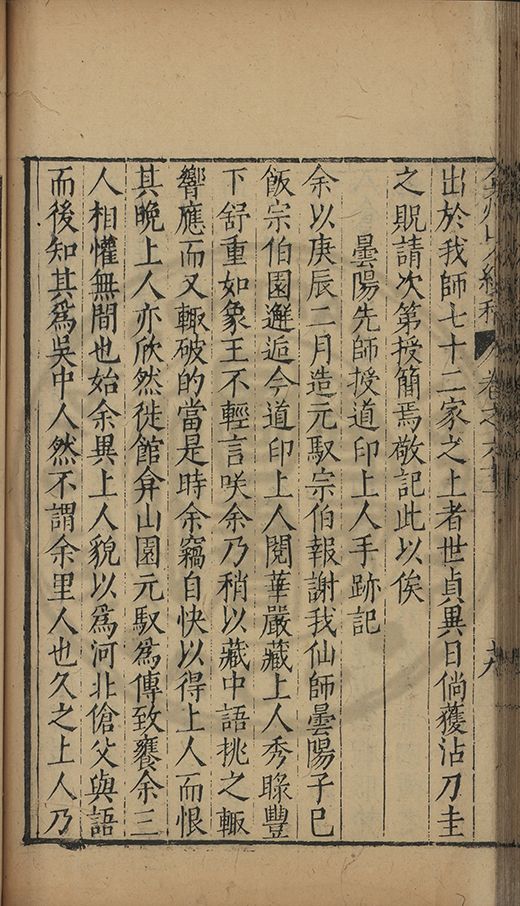 弇州山人續稿 卷之六十六
出於我師七十二家之上者世貞異日倘獲沾刀圭
之貺請次第授簡焉敬記此以俟
曇陽先師授道印上人手跡記
余以庚辰二月造元馭宗伯報謝我仙師曇陽子已
飯宗伯園邂逅今道印上人閱華嚴藏上人秀睩豐
下舒重如象王不輕言咲余乃稍以藏中語挑之輙
響應而又輙破的當是時余竊自快以得上人而恨
其晚上人亦欣然徙館弇山園元馭為傳致饔余三
人相懽無間也始余異上人貌以為河北傖父與語
而後知其為吳中人然不謂余里人也久之上人乃